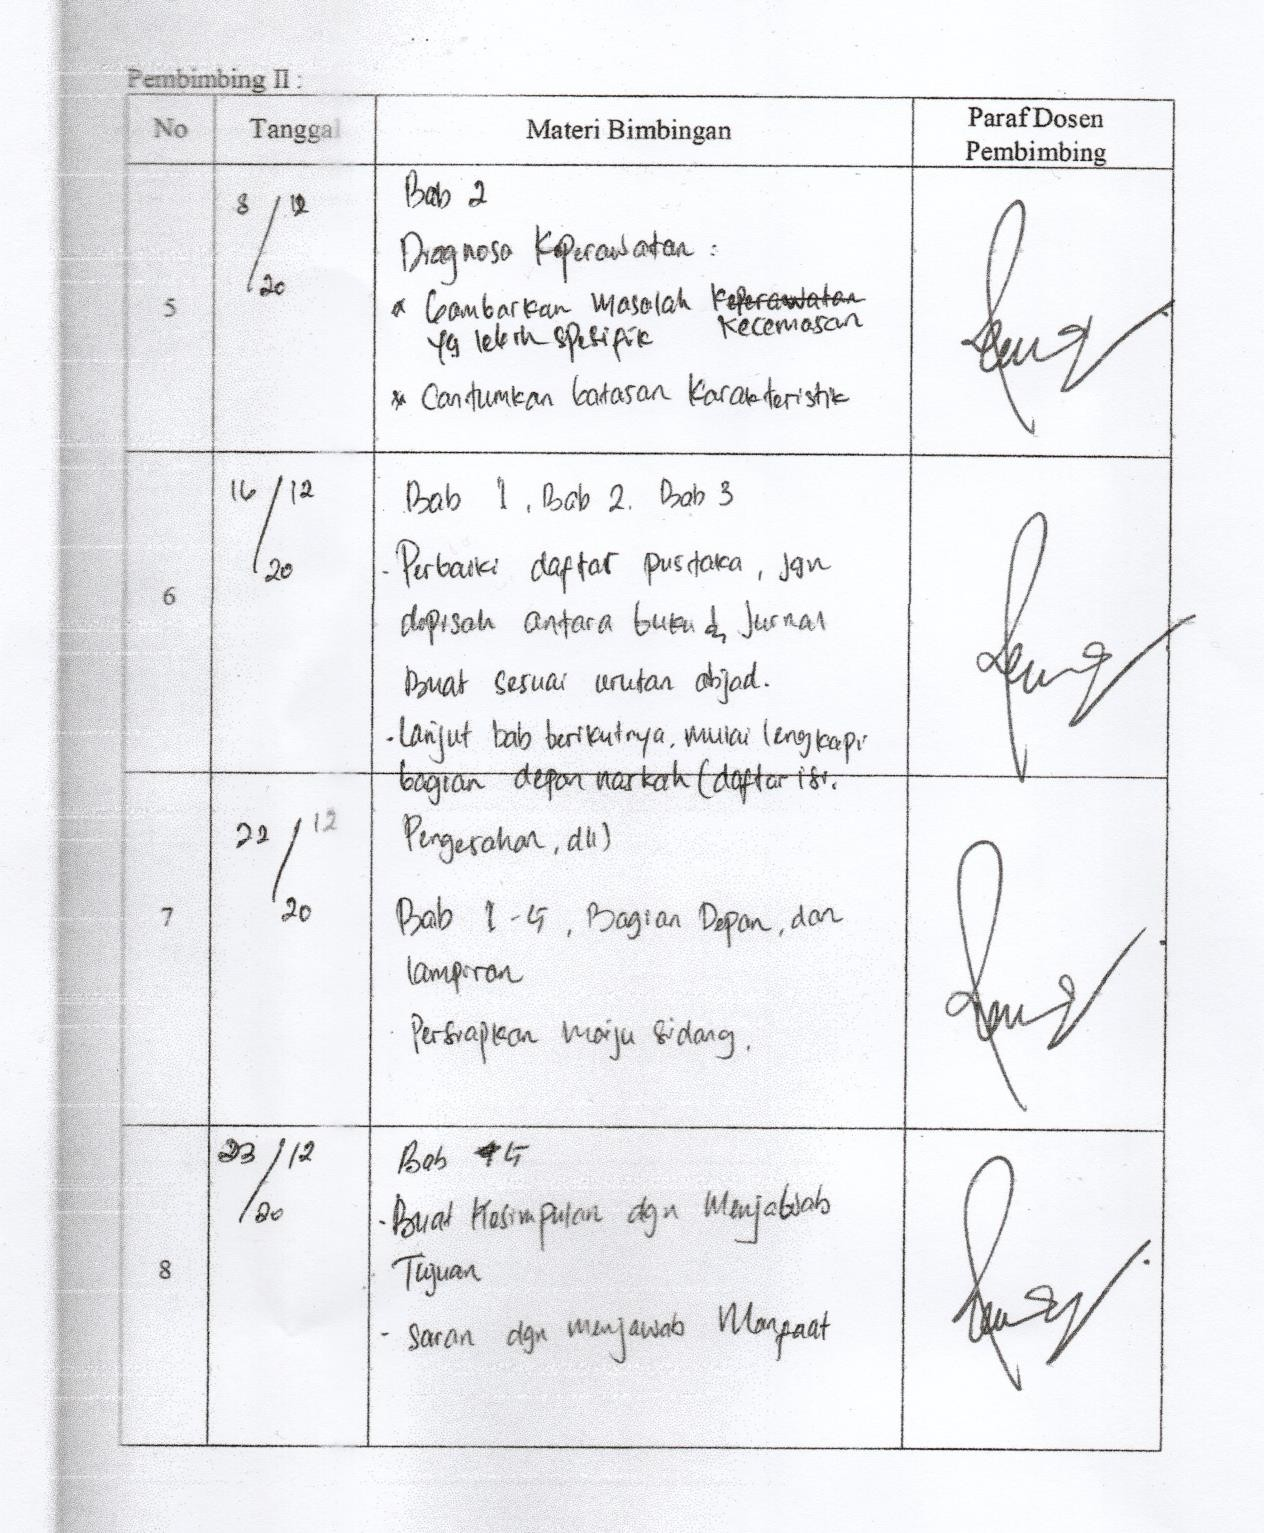 Pembimbing II :
No Tanggal Materi Bimbingan Paraf Dosen Pembimbing
5 8/12/20 Bab 2
Diagnosa Keperawatan :
* Gambarkan masalah keperawatan kecemasan
yg lebih spesifik
* Cantumkan batasan karakteristik
6 16/12/20 Bab 1, Bab 2. Bab 3
- Perbaiki daftar pustaka, jgn
dipisah antara buku & Jurnal
Buat sesuai urutan abjad.
- Lanjut bab berikutnya, mulai lengkapi
bagian depan naskah (daftar isi,
Pengesahan, dll)
7 22/12/20 Bab 1-5, Bagian Depan, dan
lampiran
- Persiapkan maju sidang.
8 23/12/20 Bab 5
- Buat Kesimpulan dgn Menjawab
Tujuan
- Saran dgn menjawab Manfaat